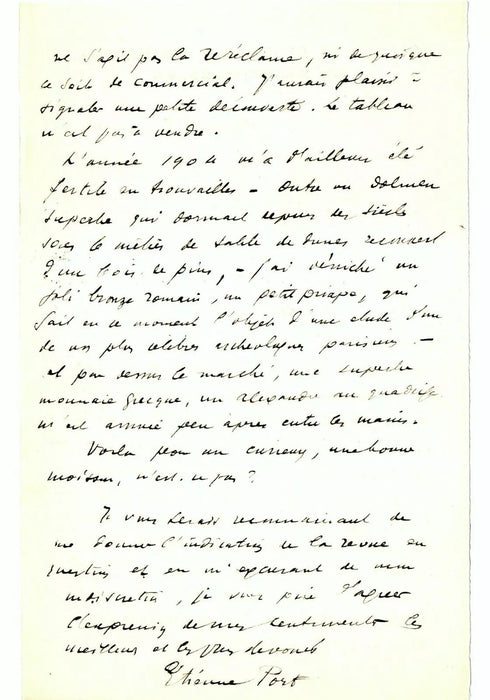 ne s'agit pas là de réclame, ni de quoique
ce soit de commercial. J'aurais plaisir à
signaler une petite découverte. Le tableau
n'est pas à vendre.
L'année 1904 m'a d'ailleurs été
fertile en trouvailles – outre un dolmen
superbe qui dormait depuis des siècles
sous le mètres de sable de dunes recouvert
d'un bois de pins, – j'ai déniché un
joli bronze romain, un petit priape, qui
fait en ce moment l'objet d'une étude d'un
de nos plus célèbres archéologues parisiens –
et par dessus le marché, une superbe
monnaie grecque, un Alexandre au quadrige
m'est arrivée peu après entre les mains.
Voilà pour un curieux, une bonne
moisson, n'est-ce pas ?
Je vous serais reconnaissant de
me donner l'indication de la revue en
question et en m'excusant de mon
indiscrétion, je vous prie d'agréer
l'expression de mes sentiments les
meilleurs et les plus dévoués
Etienne Port